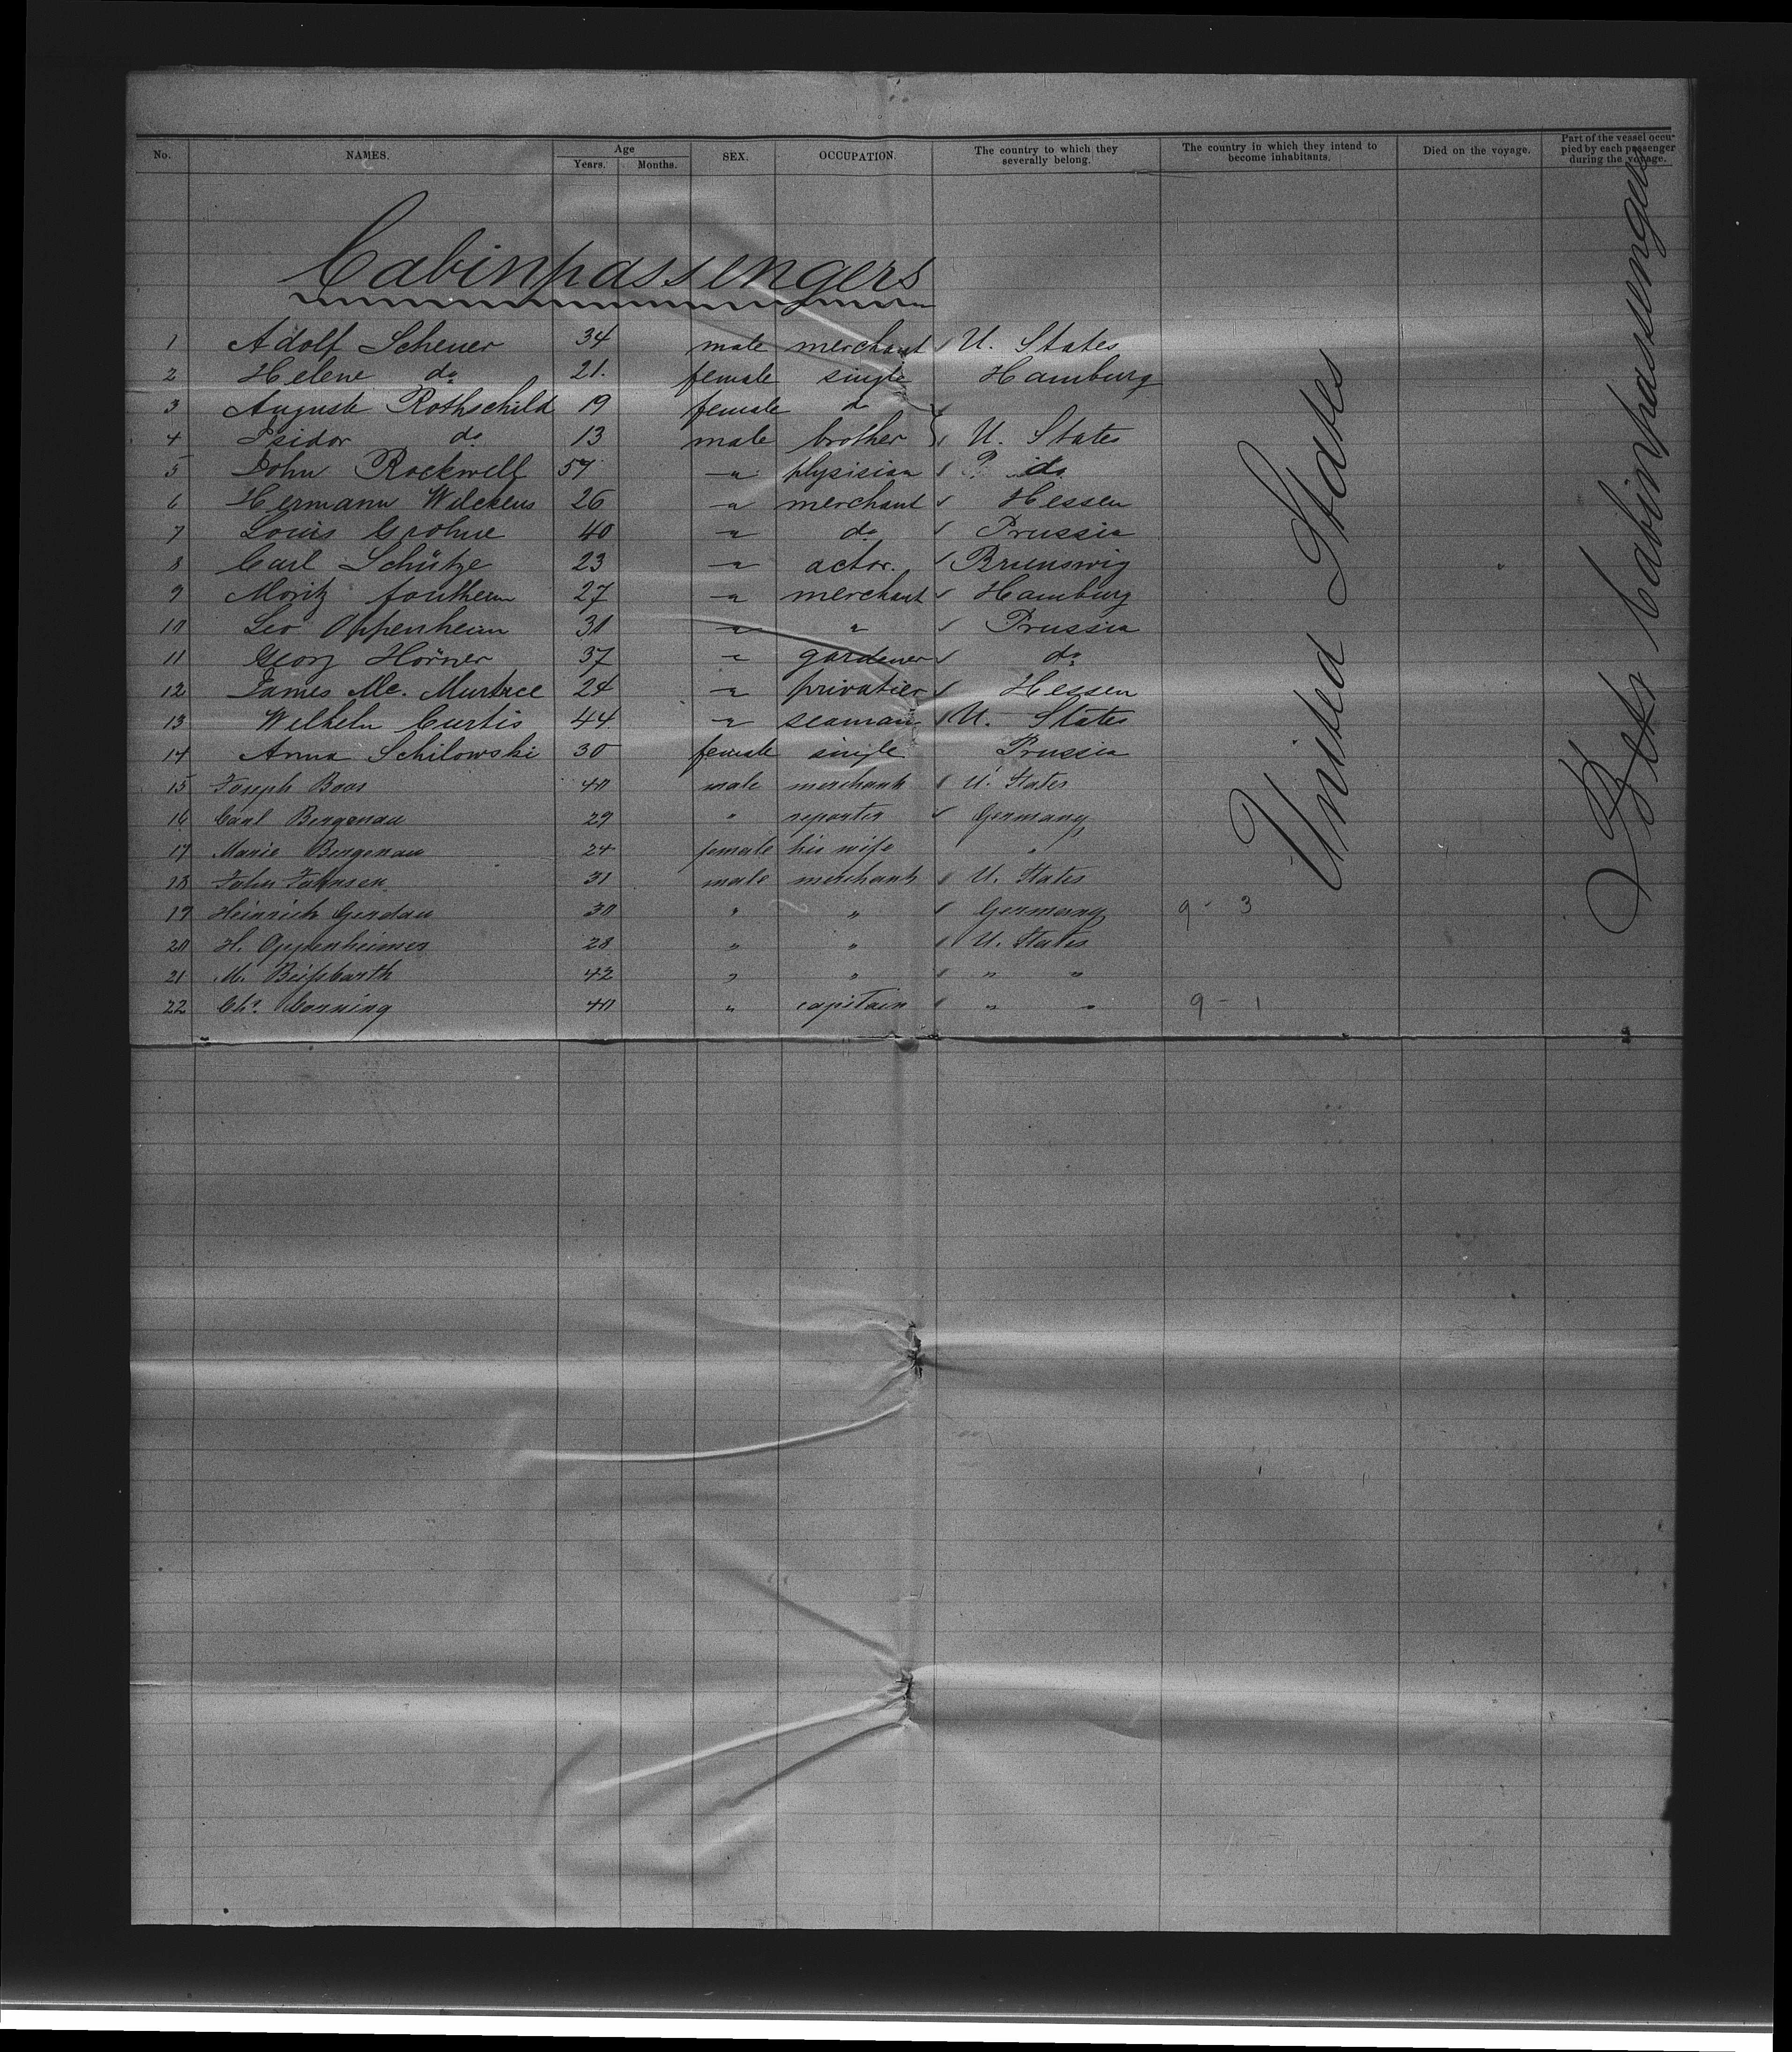 No. NAMES. Age Years. Months. SEX. OCCUPATION. The country to which they severally belong. The country in which they intend to become inhabitants. Died on the voyage. Part of the vessel occupied by each passenger during the voyage.
Cabinpassengers
1 Adolf Scheuer 34 male merchant U. States
2 Helene do 21. female single Hamburg
3 Auguste Rothschild 19 female do
4 Isidor do 13 male brother U. States
5 John Rockwell 57 " physician do
6 Hermann Wilckens 26 " merchant Hessen
7 Louis Grohne 40 " do Prussia
8 Carl Schütze 23 " actor. Brunswig
9 Moritz 27 " merchant Hamburg
10 Leo Oppenheim 31 " " Prussia
11 Georg Hörner 37 " gardener do
12 James Mc. 24 " privatier Hessen
13 Wilhelm Curtis 44 " seaman U. States
14 Anna Schilowski 30 female single Prussia
15 Joseph Boas 40 male merchant U. States
16 Carl Bergenau 29 " reporter Germany
17 Marie Bergenau 24 female his wife "
18 John Johnsen 31 male merchant U. States
19 Heinrich Gerdau 30 " " Germany 9 - 3
20 H. Oppenheimer 28 " " U. States
21 M. Beissbarth 42 " " " "
22 Chs. Corning 40 " capitain " " 9 - 1
United States
Cabinpassengers